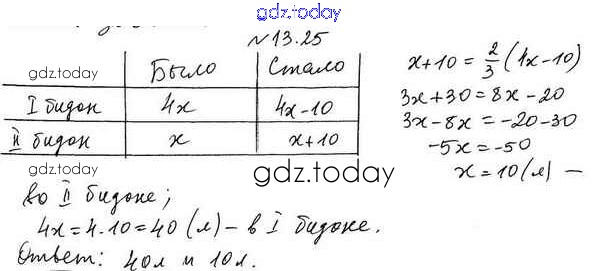 gdz.today
№ 13.25
Было Стало
I бидон 4x 4x-10
II бидон x x+10
x+10 = 2/3 (4x-10)
3x+30 = 8x-20
3x-8x = -20-30
-5x = -50
x = 10 (л) –
во II бидоне;
4x = 4·10 = 40 (л) – в I бидоне.
Ответ: 40л и 10л.
gdz.today
gdz.today
gdz.today
gdz.today
gdz.today